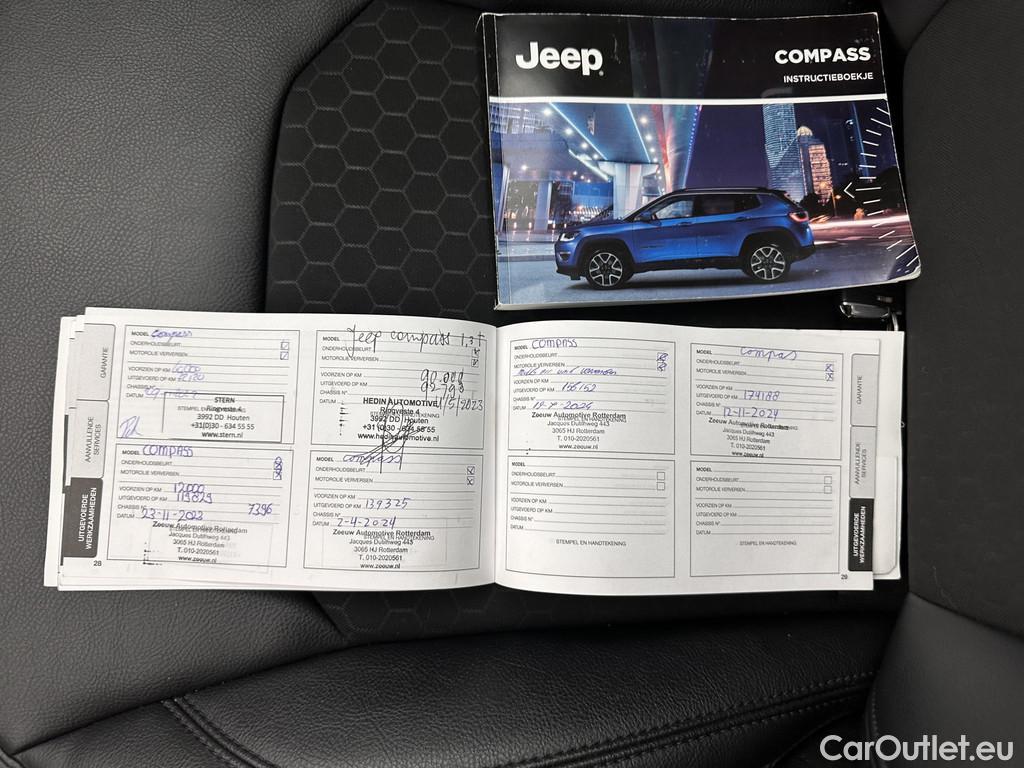 Jeep
COMPASS
INSTRUCTIEBOEKJE
GARANTIE
AANVULLENDE SERVICES
UITGEVOERDE WERKZAAMHEDEN
28
MODEL Compass
ONDERHOUDSBEURT
MOTOROLIE VERVERSEN
VOORZIEN OP KM
UITGEVOERD OP KM
CHASSIS N°
DATUM
STERN
Ringveste 4
3992 DD Houten
+31(0)30 - 634 55 55
www.stern.nl
MODEL Jeep compass 1,3t
ONDERHOUDSBEURT
MOTOROLIE VERVERSEN
VOORZIEN OP KM 90.000
UITGEVOERD OP KM
CHASSIS N°
DATUM
HEDIN AUTOMOTIVE
Ringveste 4
3992 DD Houten
+31 (0)30 - 634 55 55
www.hedinautomotive.nl
MODEL COMPASS
ONDERHOUDSBEURT
MOTOROLIE VERVERSEN
VOORZIEN OP KM 12000
UITGEVOERD OP KM 119829
CHASSIS N° 7396
DATUM 23-11-2023
Zeeuw Automotive Rotterdam
Jacques Dutilhweg 443
3065 HJ Rotterdam
T. 010-2020561
www.zeeuw.nl
MODEL compass
ONDERHOUDSBEURT
MOTOROLIE VERVERSEN
VOORZIEN OP KM
UITGEVOERD OP KM 139325
CHASSIS N°
DATUM 2-4-2024
Zeeuw Automotive Rotterdam
Jacques Dutilhweg 443
3065 HJ Rotterdam
T. 010-2020561
www.zeeuw.nl
MODEL COMPASS
ONDERHOUDSBEURT
MOTOROLIE VERVERSEN
VOORZIEN OP KM
UITGEVOERD OP KM 156152
CHASSIS N°
DATUM
Zeeuw Automotive Rotterdam
Jacques Dutilhweg 443
3065 HJ Rotterdam
T. 010-2020561
www.zeeuw.nl
MODEL Compas
ONDERHOUDSBEURT
MOTOROLIE VERVERSEN
VOORZIEN OP KM
UITGEVOERD OP KM 174188
CHASSIS N°
DATUM 12-11-2024
Zeeuw Automotive Rotterdam
Jacques Dutilhweg 443
3065 HJ Rotterdam
T. 010-2020561
www.zeeuw.nl
MODEL
ONDERHOUDSBEURT
MOTOROLIE VERVERSEN
VOORZIEN OP KM
UITGEVOERD OP KM
CHASSIS N°
DATUM
STEMPEL EN HANDTEKENING
MODEL
ONDERHOUDSBEURT
MOTOROLIE VERVERSEN
VOORZIEN OP KM
UITGEVOERD OP KM
CHASSIS N°
DATUM
STEMPEL EN HANDTEKENING
GARANTIE
AANVULLENDE SERVICES
UITGEVOERDE WERKZAAMHEDEN
29
CarOutlet.eu